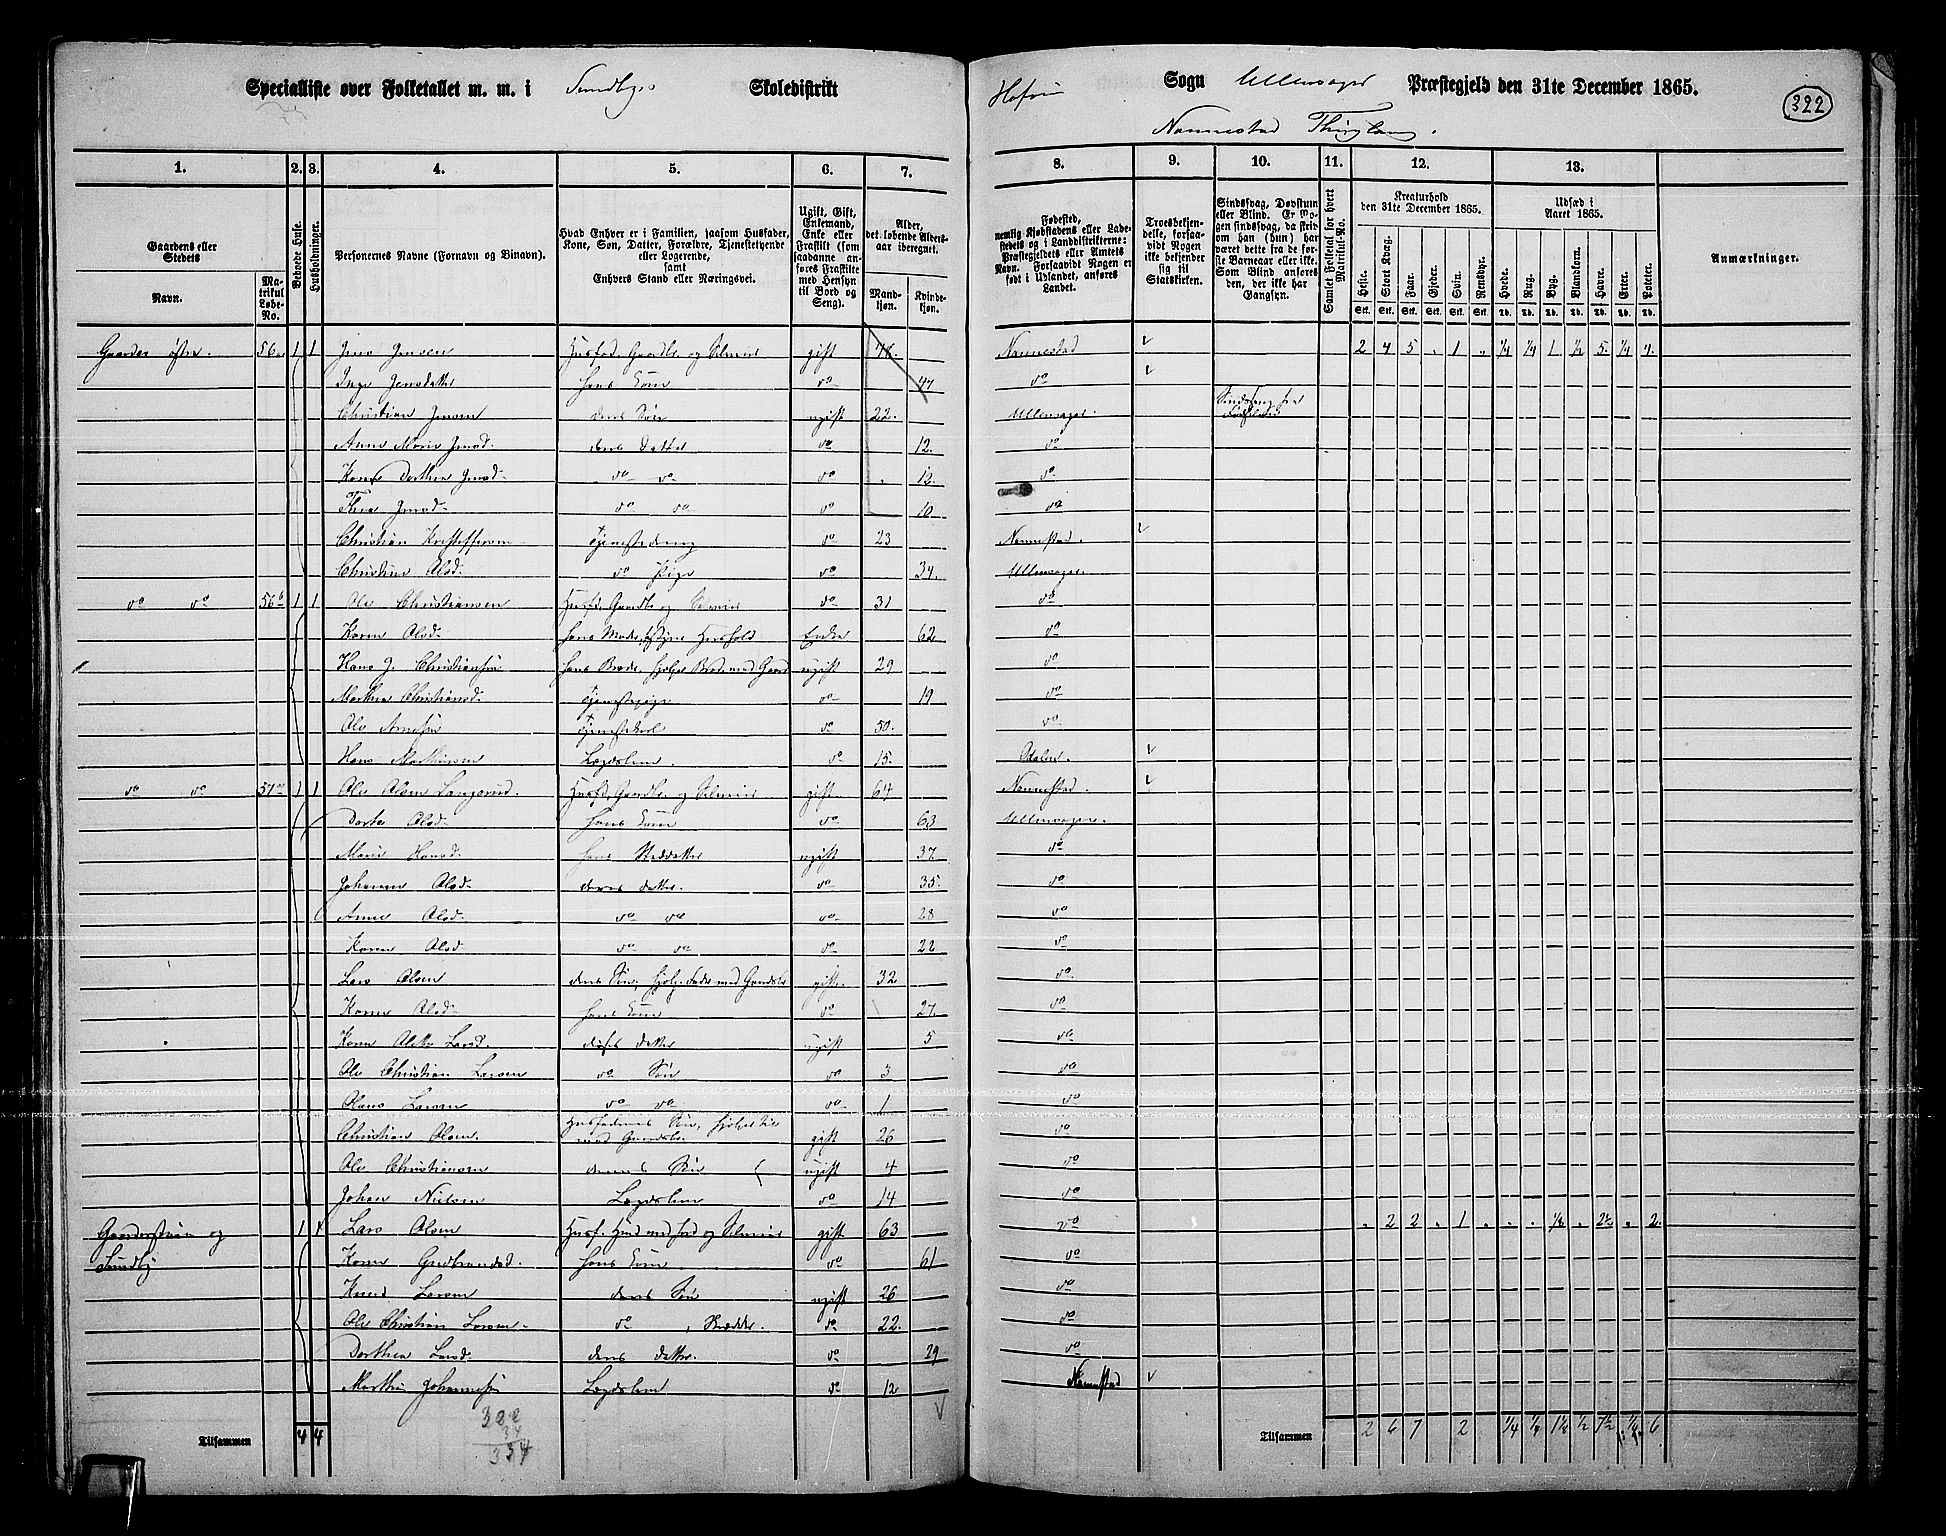 Specialliste over Folketallet m. m. i Sundbyes Skoledistrikt
Sogn Ullensager Præstegjeld den 31te December 1865.
322
Nannestad Thinglaug.
1. 2. 3. 4. 5. 6. 7.
8. 9. 10. 11. 12. 13.
Gaardens eller Stedets
Navn.
Matrikul Løbe-No.
Beboede Huse.
Husholdninger.
Personernes Navne (Fornavn og Binavn).
Hvad Enhver er i Familien, saasom Husfader, Kone, Søn, Datter, Forældre, Tjenestetyende eller Logerende, samt Enhvers Stand eller Næringsvei.
Ugift, Gift, Enkemand, Enke eller Fraskilt (som saadanne anføres Fraskilte med Hensyn til Bord og Seng).
Alder, det løbende Aldersaar iberegnet.
Mandkjøn.
Kvindekjøn.
Fødested, nemlig Kjøbstadens eller Ladestedets og i Landdistrikterne: Præstegjeldets eller Amtets Navn. Forsaavidt Nogen er født i Udlandet, anføres Landet.
Troesbekjendelse, forsaavidt Nogen ikke bekjender sig til Statskirken.
Sindssvag, Døvstum eller Blind. Er Nogen sindssvag, da skrives om han (hun) har været dette fra de første Barneaar eller ikke. Som Blind anføres den, der ikke har Gangsyn.
Samlet Folketal for hvert Matrikul-No.
Kreaturhold den 31te December 1865.
Heste. Stort Kvæg. Faar. Gjeder. Svin. Rensdyr.
Udsæd i Aaret 1865.
Hvede. Rug. Byg. Blandkorn. Havre. Erter. Poteter.
Anmærkninger.
Gaarder østre. 56a 1 1 Jens Jensen Husfad. Gaardbr. og Selveier gift 48. Nannestad 2 4 5 . 1 . ¼ ¼ 1 ½ 5. ¼ 4.
Inge Jensdatter hans Kone do 47 do
Christian Jensen deres Søn ugift 22. Ullensager. Sindssvag fra
Anne Marie Jensd. deres Datter do 12. do
Karen Dorthea Jensd. do do do 12. do
Thea Jensd. do do do 10 do
Christian Kristoffersen Tjenestedreng do 23 Nannestad.
Christine Olsd. do Pige do 34. Ullensager.
do do 56b 1 1 Ole Christiansen Husfd. Gaardbr. og Selveier do 31 do
Karen Olsd. hans Moder, bestyrer Hushold Enke 62 do
Hans J. Christiansen hans Broder, hjelper Brod. med Gaard ugift 29 do
Marthea Christiansd. Tjenestepige do 19 do
Ole Arnesen Tjenestekarl do 50. do
Hans Mathiesen Lægdslem. do 15. Odalen.
do do 57a 1 1 Ole Olsen Langerud. Husfd. Gaardbr. og Selveier gift 64 Nannestad.
Dorte Olsd. hans Kone do 63 Ullensager.
Marie Hansd. hans Steddatter ugift 37. do
Johanne Olsd. deres datter. do 35. do
Anne Olsd. do do do 28 do
Karen Olsd. do do do 22 do
Lars Olsen deres Søn, hjelp. Fader med Gaardsbr gift. 32 do
Karen Olsd. hans Kone do 27. do
Karen Oleth Larsd. deres datter ugift 5 do
Ole Christian Larsen do Søn do 3 do
Hans Larsen do do do 1 do
Christian Olsen. Husfaderens Søn, hjelper til med Gaardsbr. gift 26 do
Ole Christiansen dennes Søn ugift 4 do
Johan Nielsen Lægdslem do 14 do
Gaarderstuen og Sundby 1 1 Lars Olsen Husf. Husmd med Jord og Selveier gift 63 do . 2 2 . 1 . . . ½ . 2½ . 2.
Karen Gudbrandsd. hans Kone do 61 do
Knud Larsen deres Søn ugift 26 do
Ole Christian Larsen. do , Skrædder. do 22. do
Dorthea Larsd. deres datter. do 29 do
Martin Johannesen Lægdslem do 12 Nannestad
Tilsammen 4 4
300
34
334
Tilsammen 2 6 7 2 ¼ ¼ 1½ ½ 7½ ¼ 6